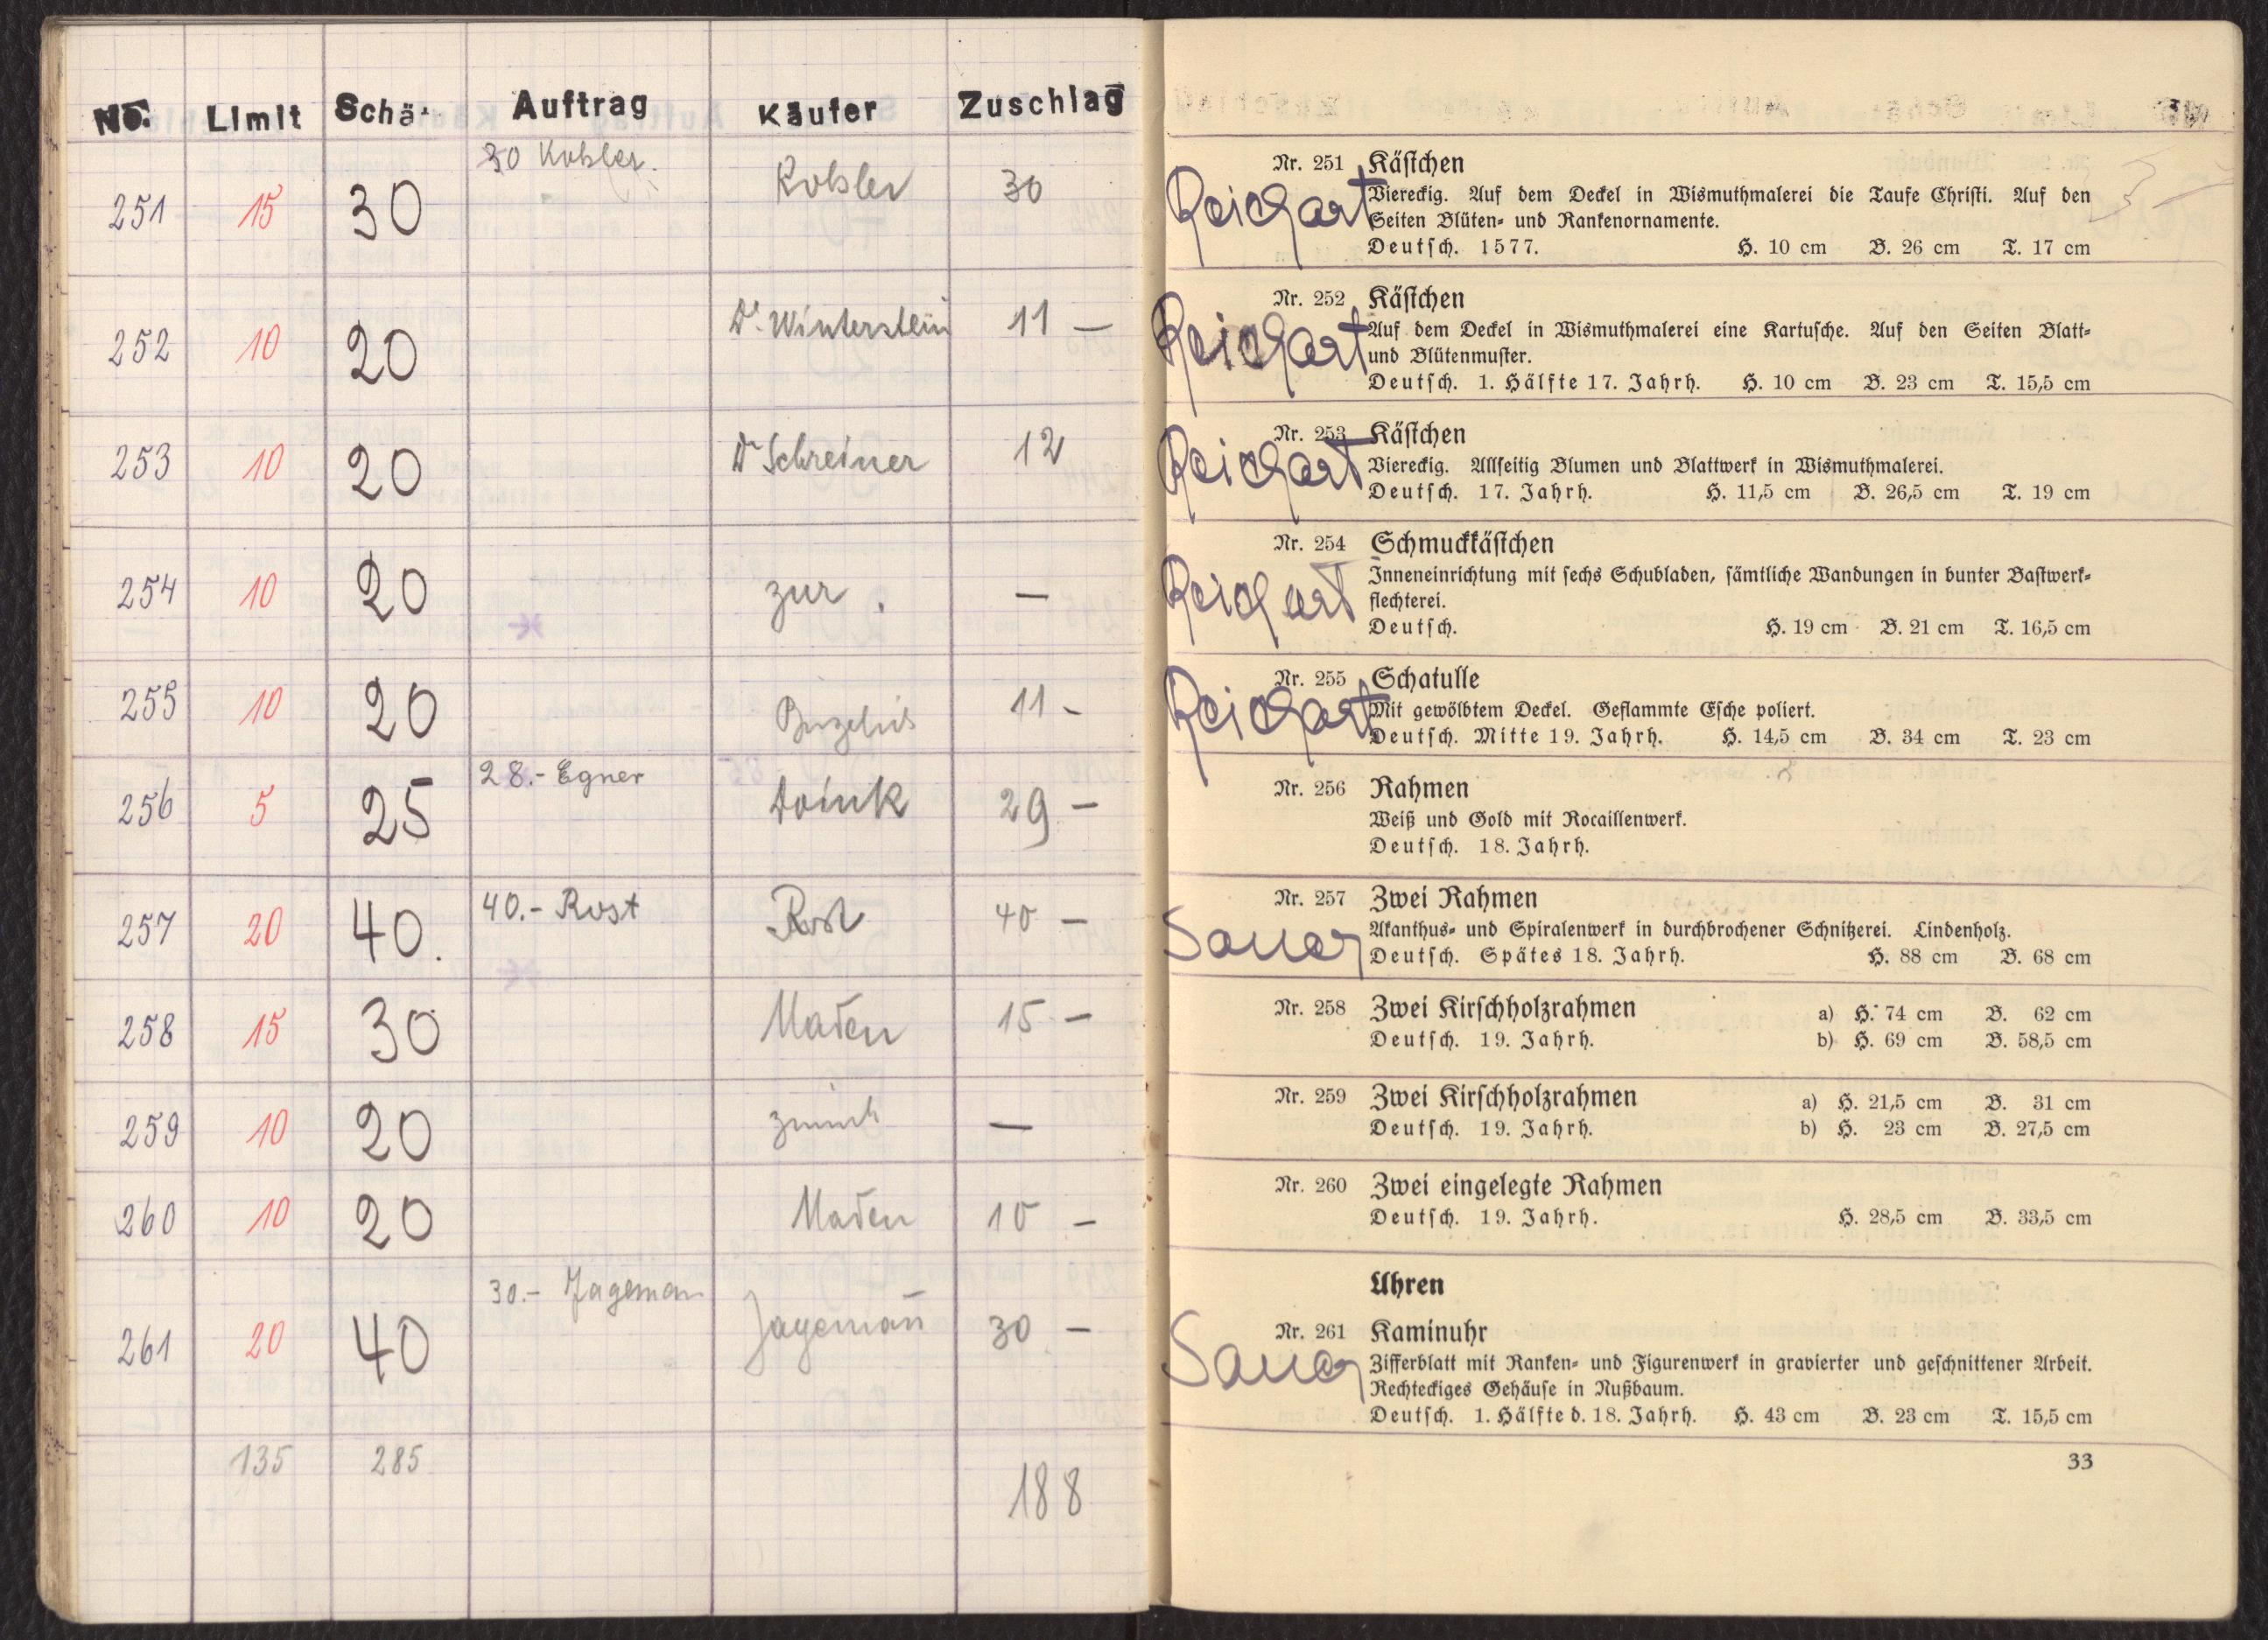 No. Limit Schä. Auftrag Käufer Zuschlag
30 Kohler.
251 15 30 Kohler 30
252 10 20 Dr. Winterstein 11 —
253 10 20 Dr Schreiner 12
254 10 20 zur. —
255 10 20 11 -
28.- Egner
256 5 25 Doink 29 —
257 20 40. 40.- Rost Rost 40 —
258 15 30 Maden 15 —
259 10 20 zurück —
260 10 20 Maden 10 —
30.- Jageman
261 20 40 Jagemañ 30 —
135 285
188
Nr. 251 Kästchen
Reichart
Viereckig. Auf dem Deckel in Wismuthmalerei die Taufe Christi. Auf den
Seiten Blüten- und Rankenornamente.
Deutsch. 1577. H. 10 cm B. 26 cm T. 17 cm
Nr. 252 Kästchen
Reichart
Auf dem Deckel in Wismuthmalerei eine Kartusche. Auf den Seiten Blatt-
und Blütenmuster.
Deutsch. 1. Hälfte 17. Jahrh. H. 10 cm B. 23 cm T. 15,5 cm
Nr. 253 Kästchen
Reichart
Viereckig. Allseitig Blumen und Blattwerk in Wismuthmalerei.
Deutsch. 17. Jahrh. H. 11,5 cm B. 26,5 cm T. 19 cm
Nr. 254 Schmuckkästchen
Reichart
Inneneinrichtung mit sechs Schubladen, sämtliche Wandungen in bunter Bastwerk-
flechterei.
Deutsch. H. 19 cm B. 21 cm T. 16,5 cm
Nr. 255 Schatulle
Reichart
Mit gewölbtem Deckel. Geflammte Esche poliert.
Deutsch. Mitte 19. Jahrh. H. 14,5 cm B. 34 cm T. 23 cm
Nr. 256 Rahmen
Weiß und Gold mit Rocaillenwerk.
Deutsch. 18. Jahrh.
Nr. 257 Zwei Rahmen
Sauer
Akanthus- und Spiralenwerk in durchbrochener Schnitzerei. Lindenholz.
Deutsch. Spätes 18. Jahrh. H. 88 cm B. 68 cm
Nr. 258 Zwei Kirschholzrahmen a) H. 74 cm B. 62 cm
Deutsch. 19. Jahrh. b) H. 69 cm B. 58,5 cm
Nr. 259 Zwei Kirschholzrahmen a) H. 21,5 cm B. 31 cm
Deutsch. 19. Jahrh. b) H. 23 cm B. 27,5 cm
Nr. 260 Zwei eingelegte Rahmen
Deutsch. 19. Jahrh. H. 28,5 cm B. 33,5 cm
Uhren
Nr. 261 Kaminuhr
Sauer
Zifferblatt mit Ranken- und Figurenwerk in gravierter und geschnittener Arbeit.
Rechteckiges Gehäuse in Nußbaum.
Deutsch. 1. Hälfte d. 18. Jahrh. H. 43 cm B. 23 cm T. 15,5 cm
33